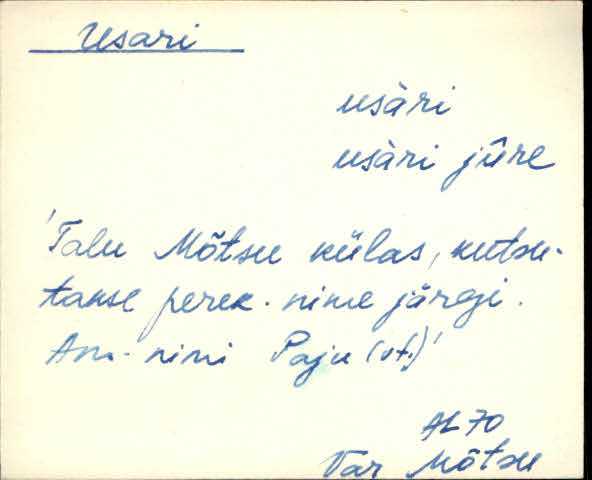 Usari
usàri
usàri jûre
'Talu Mõtsu külas, kutsu-
takse perek. nime järgi.
Am. nimi Paju (vt.)'
AL 70
Var Mõtsu